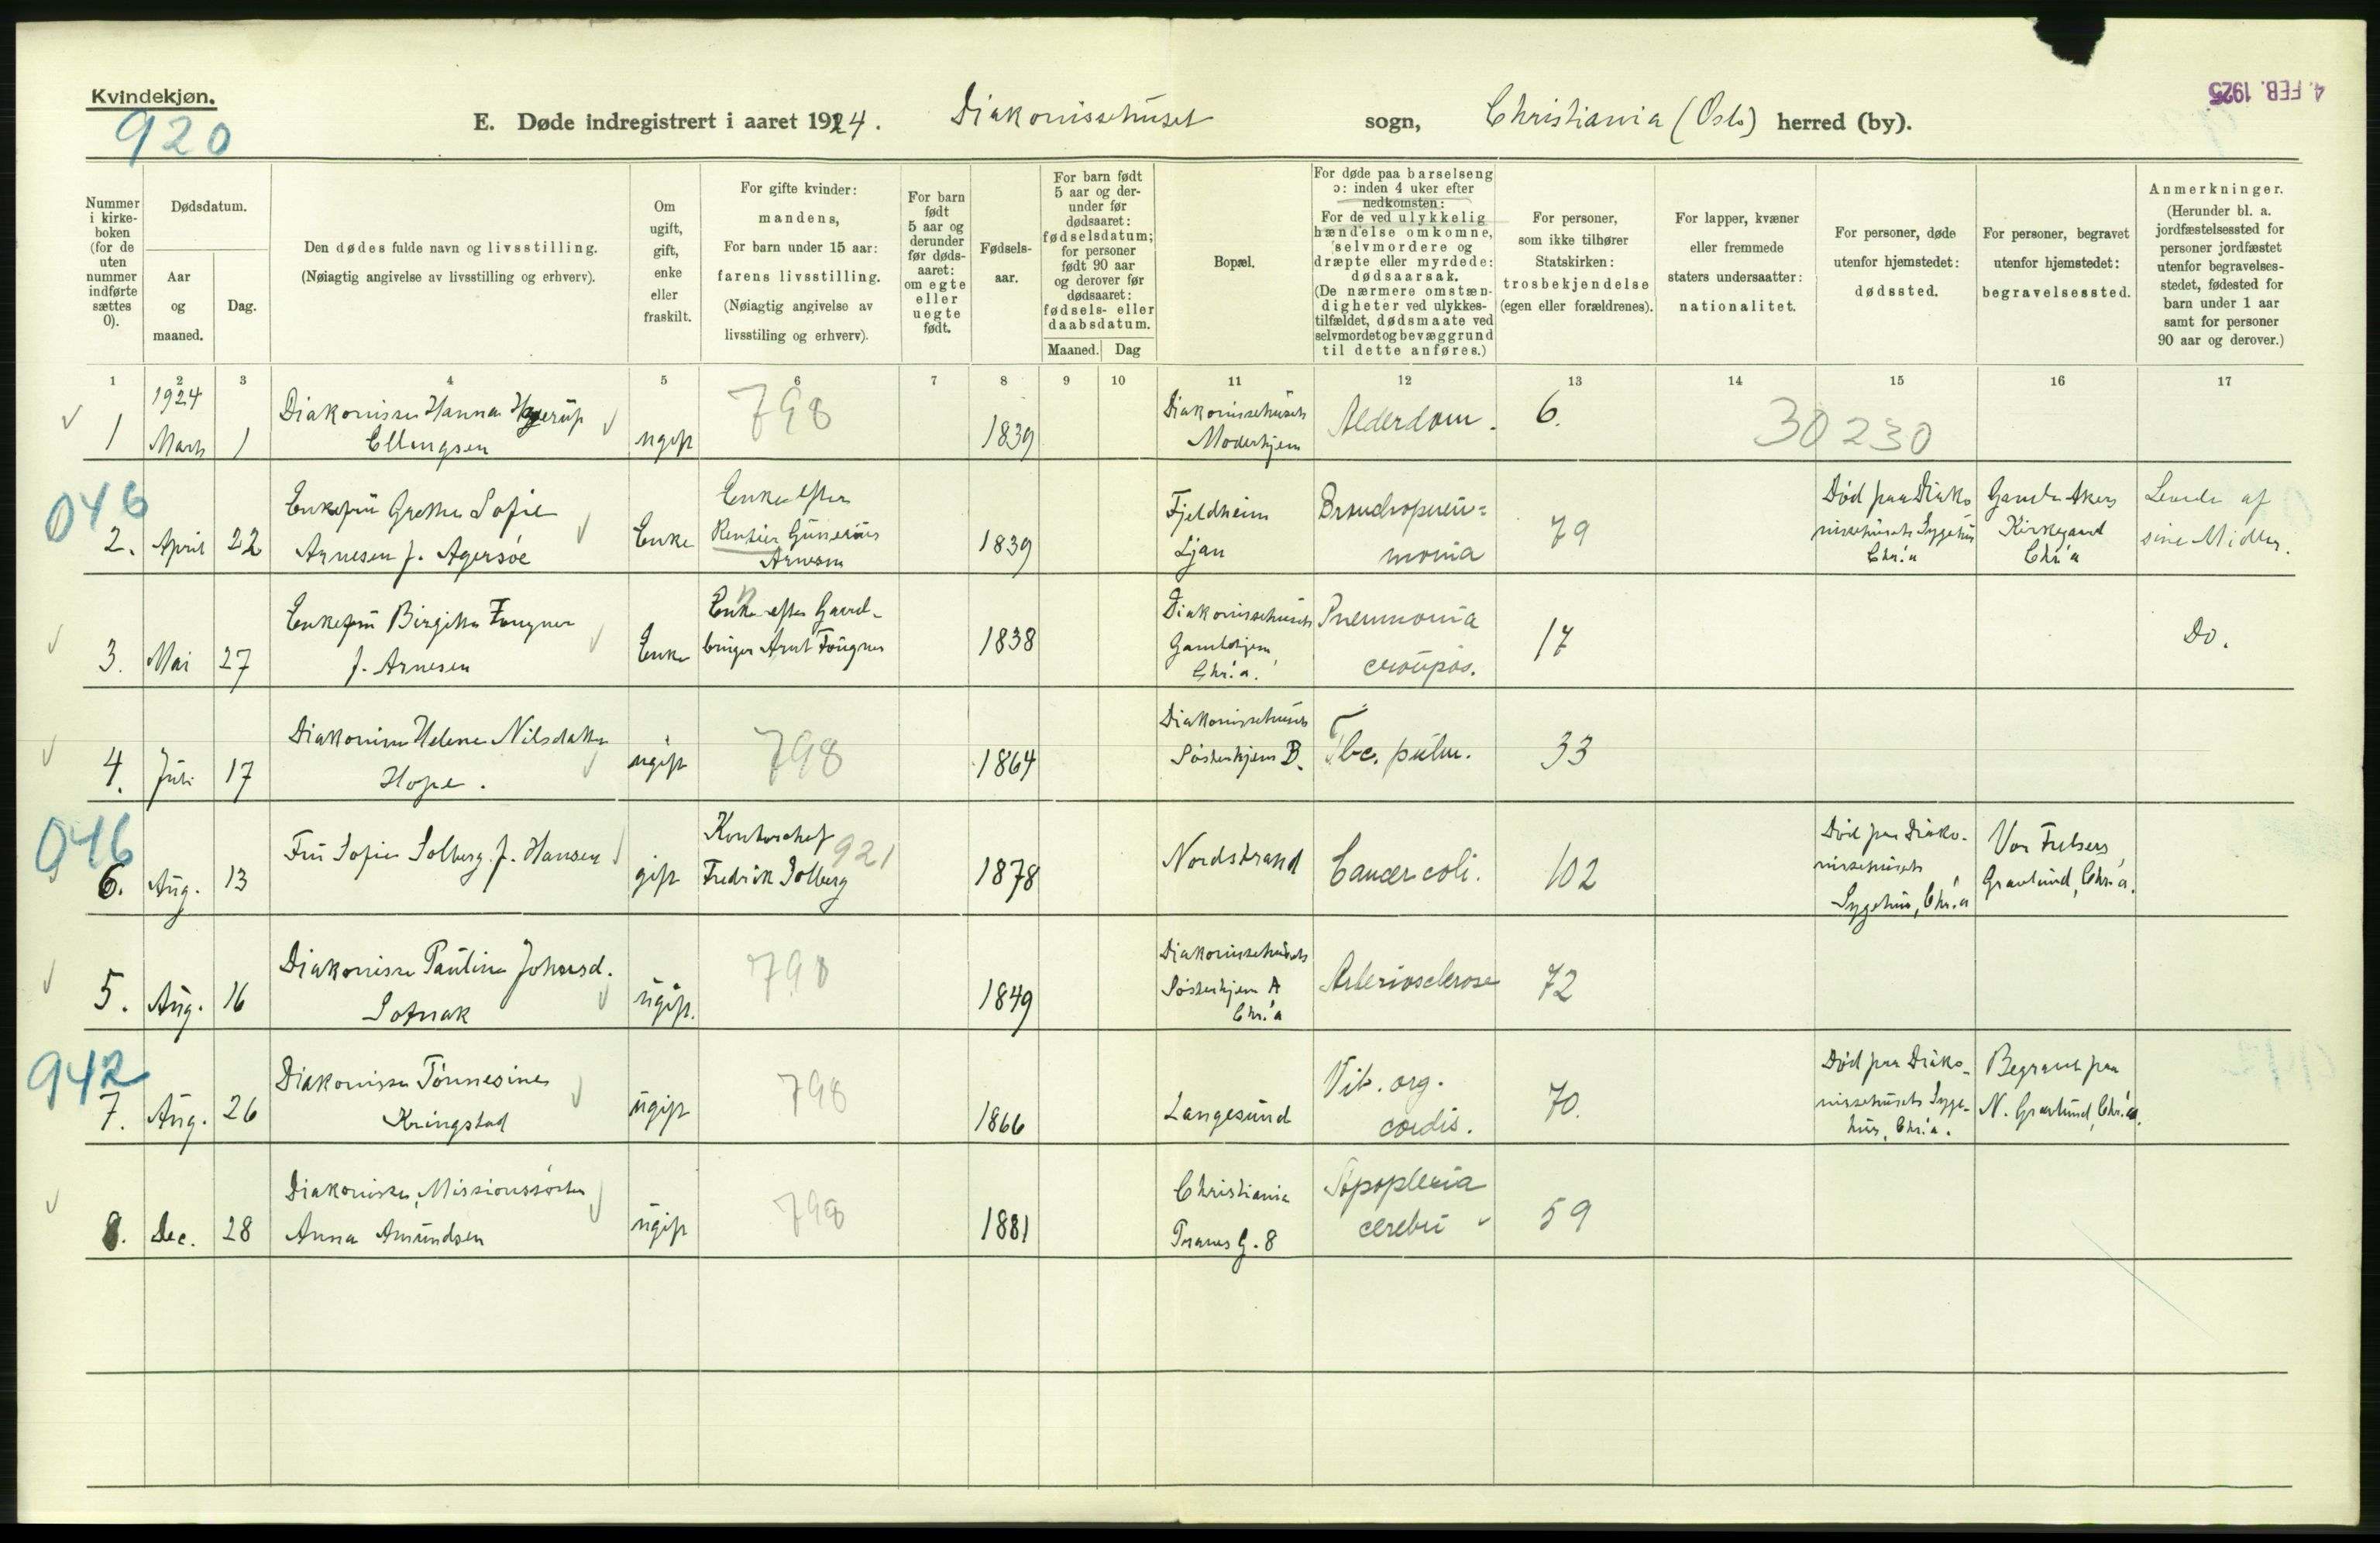 Kvindekjøn.
920
E. Døde indregistrert i aaret 1924. Diakonissehuset sogn, Christiania (Oslo) herred (by).
4. FEB. 1925
Nummer i kirke-boken (for de uten nummer indførte sættes 0).
Dødsdatum.
Aar og maaned.
Dag.
Den dødes fulde navn og livsstilling.
(Nøiagtig angivelse av livsstilling og erhverv).
Om ugift, gift, enke eller fraskilt.
For gifte kvinder: mandens,
For barn under 15 aar: farens livsstilling.
(Nøiagtig angivelse av livsstiling og erhverv).
For barn født 5 aar og derunder før døds-aaret: om egte eller uegte født.
Fødsels-aar.
For barn født 5 aar og der-under før dødsaaret: fødselsdatum; for personer født 90 aar og derover før dødsaaret: fødsels- eller daabsdatum.
Maaned. Dag
Bopæl.
For døde paa barselseng ɔ: inden 4 uker efter nedkomsten:
For de ved ulykkelig hændelse omkomne, selvmordere og dræpte eller myrdede: dødsaarsak.
(De nærmere omstæn-digheter ved ulykkes-tilfældet, dødsmaate ved selvmordet og bevæggrund til dette anføres.)
For personer, som ikke tilhører Statskirken: trosbekjendelse (egen eller forældrenes).
For lapper, kvæner eller fremmede staters undersaatter: nationalitet.
For personer, døde utenfor hjemstedet: dødssted.
For personer, begravet utenfor hjemstedet: begravelsessted.
Anmerkninger.
(Herunder bl. a. jordfæstelsessted for personer jordfæstet utenfor begravelses-stedet, fødested for barn under 1 aar samt for personer 90 aar og derover.)
1 2 3 4 5 6 7 8 9 10 11 12 13 14 15 16 17
1924
1 Marts 1 Diakonisse Hanna Ellingsen ugift 798 1839 Diakonissehusets Moderhjem Alderdom. 6. 30230
046
2. April 22 Enkefru Grethe Sofie Arnesen f. Agersøe Enke Enke efter Rentier Gunerius Arnesen 1839 Fjeldheim Ljan Bronchopneu= monia 79 Død paa Diako nissehusets Sygehus Chr.a Gamle Akers Kirkegaard Chr.a Levede af sine Midler.
3. Mai 27 Enkefru Birgitte Fougner f. Arnesen Enke Enke efter Gaard- bruger Arnt Fougner 1838 Diakonissehusets Gamlehjem Chr.a. Pneumonia croupøs. 17 Do.
4. Juli 17 Diakonisse Helene Nilsdatter Hope. ugift 798 1864 Diakonissehusets Søsterhjem B. Tbc. pulm. 33
046
6. Aug. 13 Fru Sofie Solberg f. Hansen gift Kontorchef Fredrik Solberg 921 1878 Nordstrand Cancer coli. 102 Død paa Diako- nissehusets Sygehus, Chr.a Vor Frelsers Gravlund, Chr.a.
5. Aug. 16 Diakonisse Pauline Johnsd. Sotnak ugift. 798 1849 Diakonissehusets Søsterhjem A Chr.a Arteriosclerose 72
942
7. Aug. 26 Diakonisse Tønnesine Kringstad ugift 798 1866 Langesund Vit. org. cordis. 70. Død paa Diako- nissehusets Syge- hus, Chr.a. Begravet paa N. Gravlund, Chr.a.
8. Dec. 28 Diakonisse, Missionssøster Anna Amundsen ugift 798 1881 Christiania Tranes G. 8 Apoplexia cerebri 59